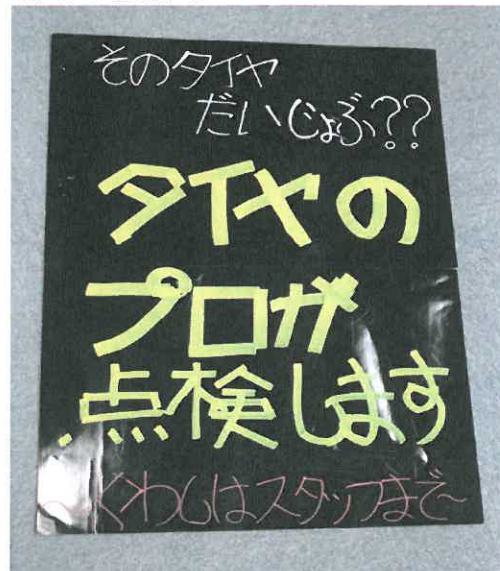 そのタイヤ
だいじょぶ??
タイヤの
プロが
点検します
~くわしはスタッフまで~